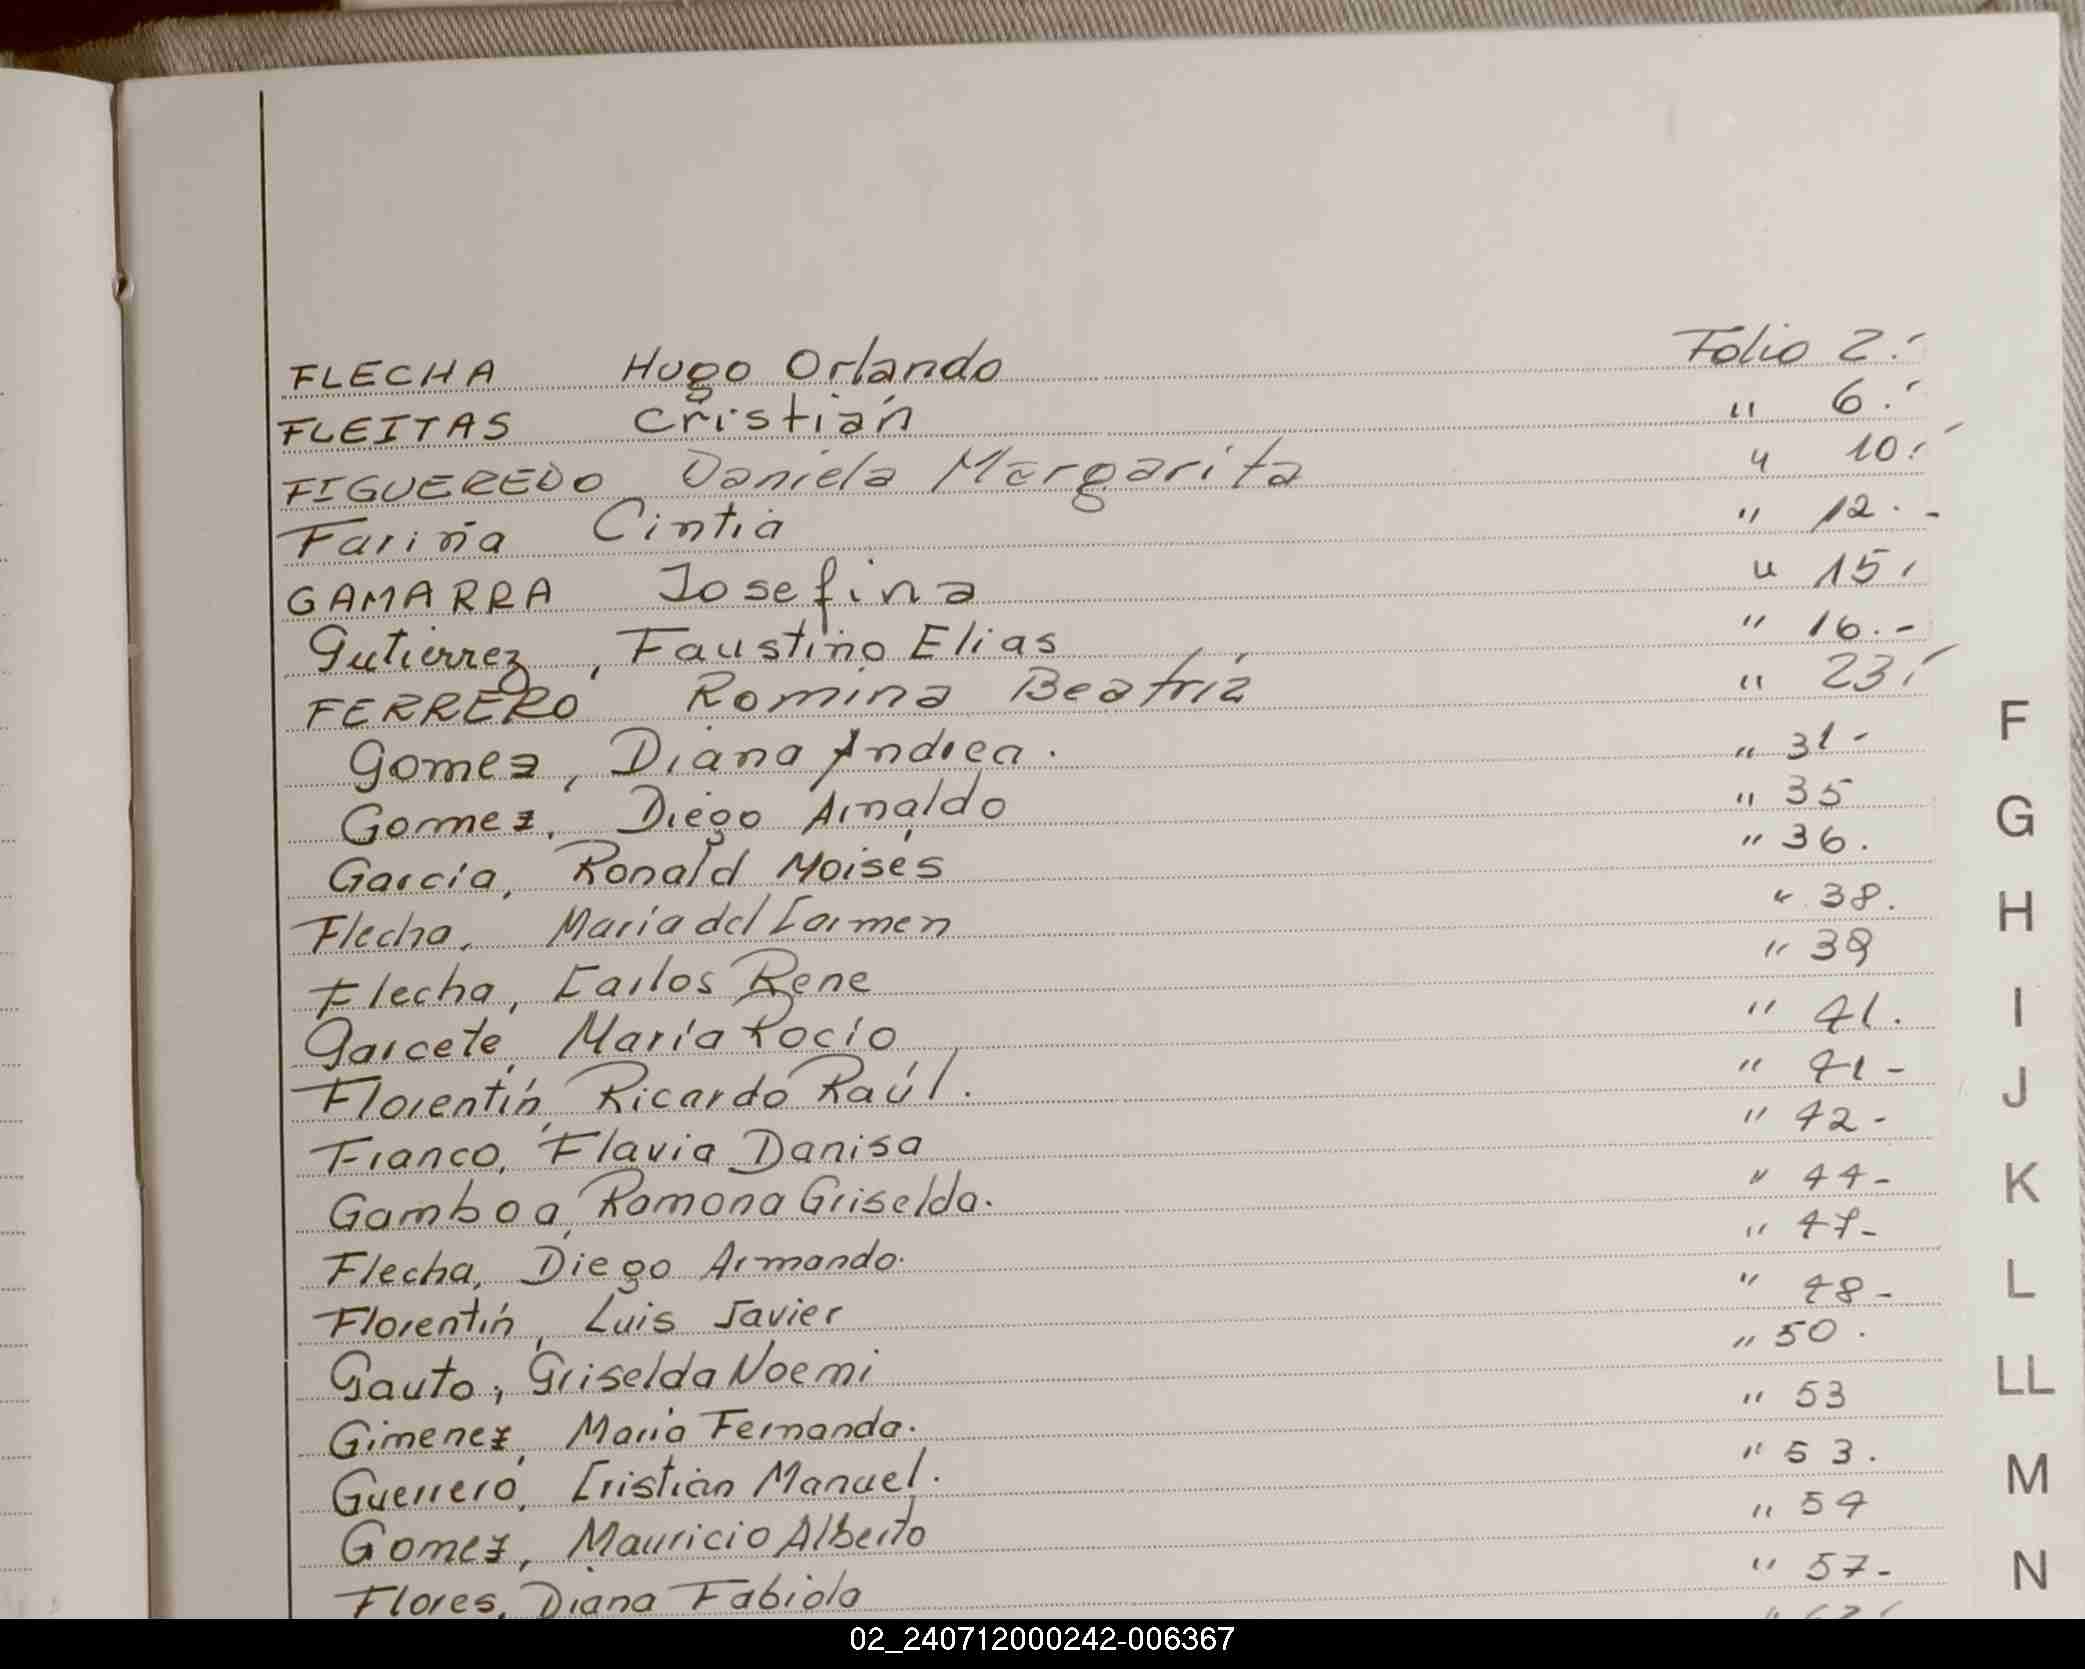 FLECHA Hugo Orlando Folio 2.-
FLEITAS Cristián " 6.-
FIGUEREDO Daniela Margarita " 10.-
Fariña Cintia " 12.-
GAMARRA Josefina " 15.
Gutierrez, Faustino Elias " 16.-
FERRERO Romina Beatríz " 23.-
Gomez, Diana Andrea. " 31-
Gomez, Diego Arnaldo " 35
García, Ronald Moisés " 36.
Flecha, María del Carmen " 38.
Flecha, Carlos Rene " 39
Garcete, María Rocío " 41.
Florentín, Ricardo Raúl. " 41-
Franco, Flavia Danisa " 42-
Gamboa, Ramona Griselda. " 44-
Flecha, Diego Armando. " 47-
Florentín, Luis Javier " 48-
Gauto, Griselda Noemi " 50.
Gimenez, María Fernanda. " 53
Guerrero, Cristian Manuel. " 53.
Gomez, Mauricio Alberto " 54
Flores, Diana Fabiola " 57-
F
G
H
I
J
K
L
LL
M
N
02_240712000242-006367